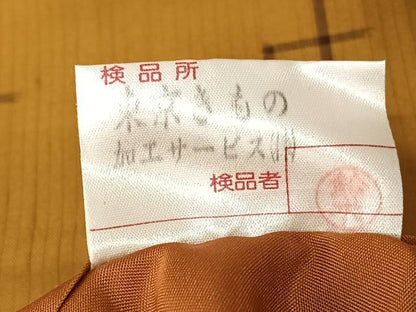 検品所
東京きもの
加工サービス(株)
検品者